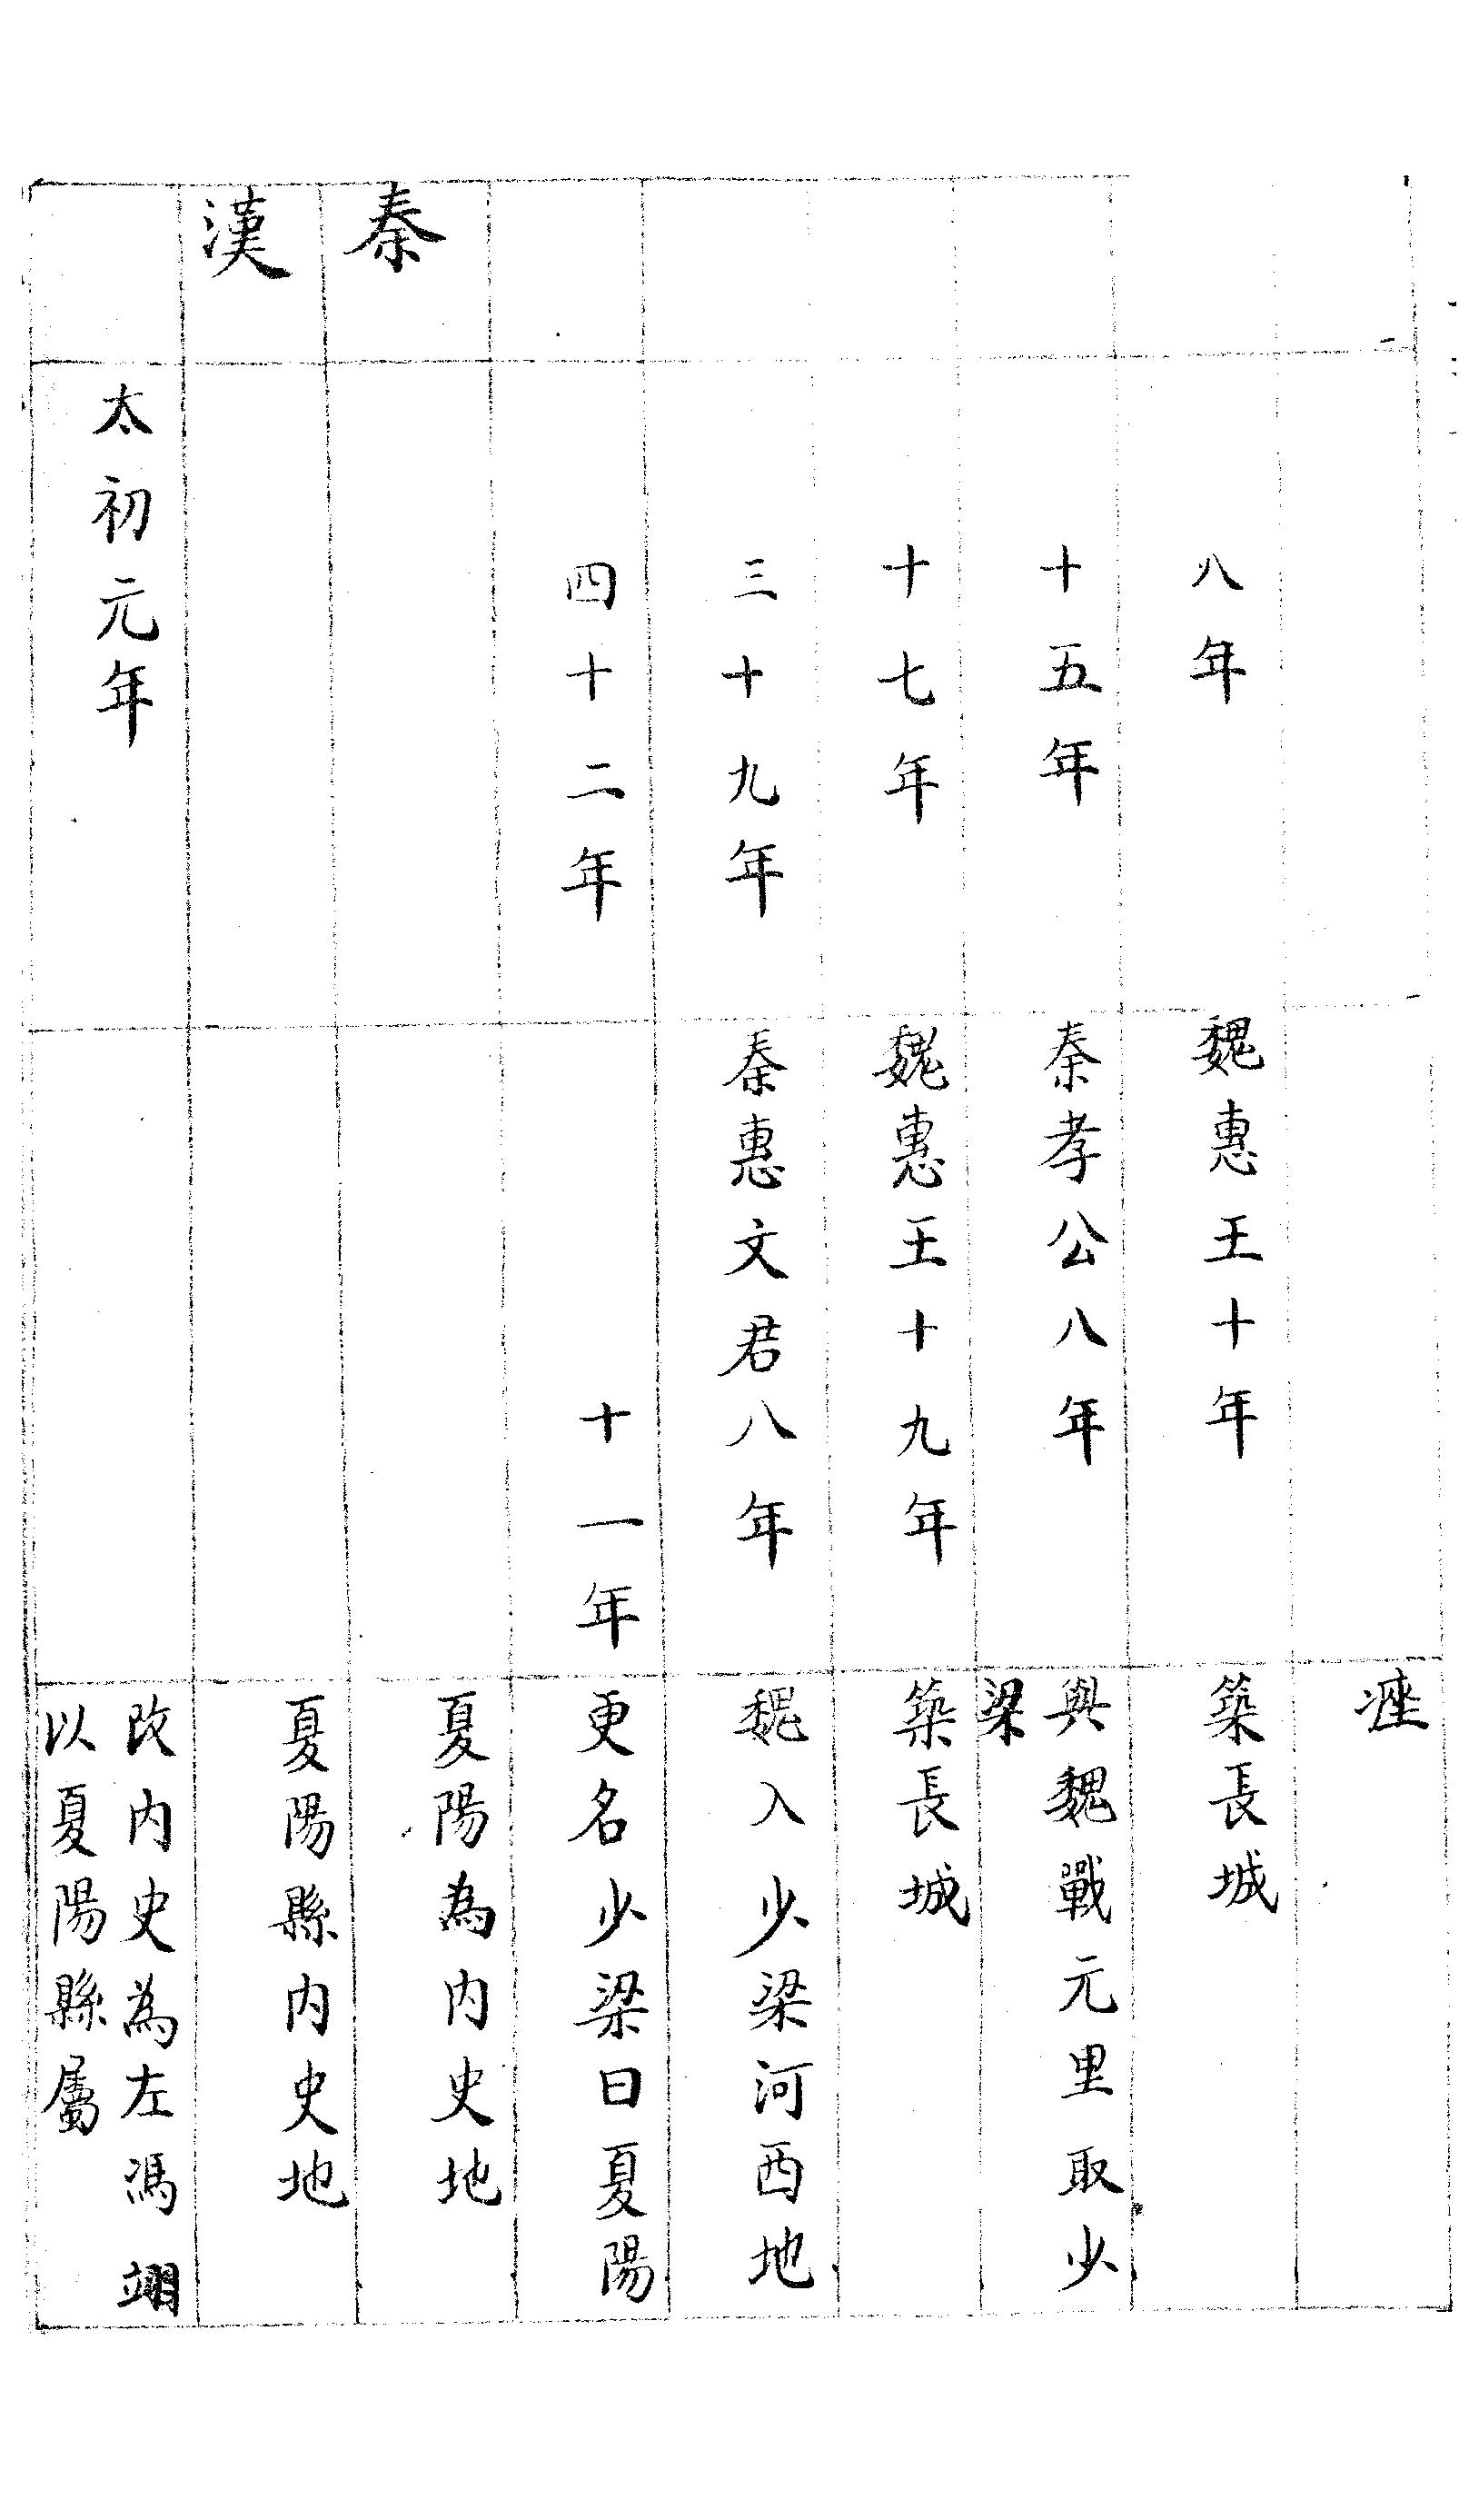 痤
八年 魏惠王十年 築長城
十五年 秦孝公八年 與魏戰元里取少
梁
十七年 魏惠王十九年 築長城
三十九年 秦惠文君八年 魏入少梁河西地
四十二年 十一年 更名少梁曰夏陽
秦 夏陽為内史地
漢 夏陽縣内史地
太初元年 改内史為左馮翊
以夏陽縣屬